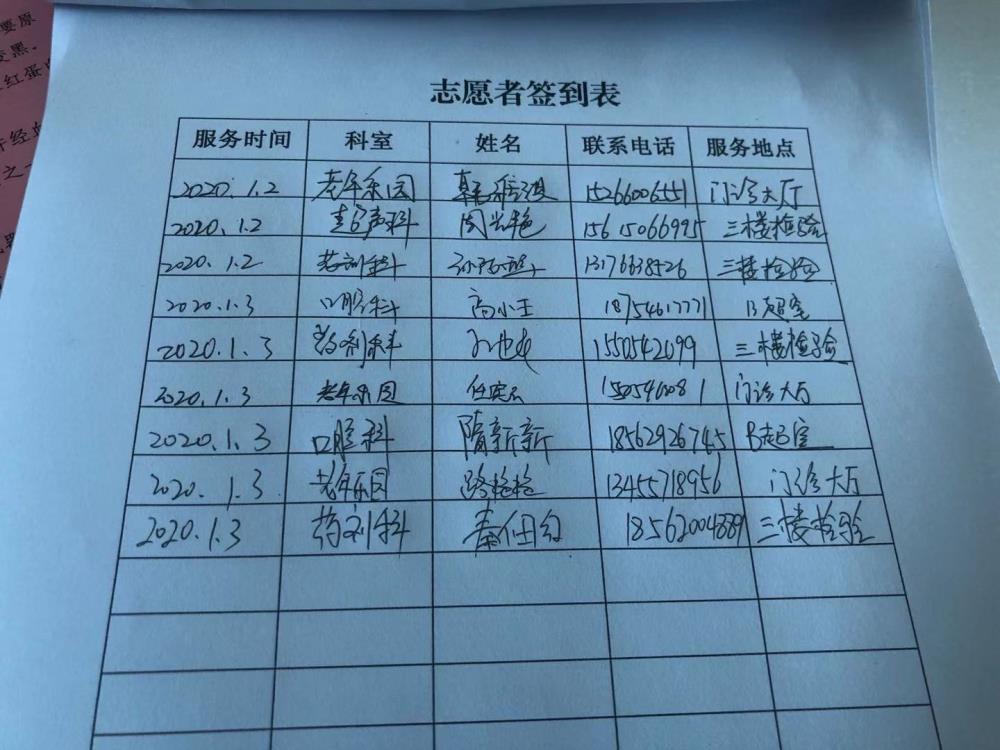 要原
变黑.
红蛋白
志愿者签到表
服务时间 科室 姓名 联系电话 服务地点
2020.1.2 老年乐园 15266006551 门诊大厅
2020.1.2 超声科 周兴艳 15615066995 三楼检验
2020.1.2 药剂科 13176638526 三楼检验
2020.1.3 口腔科 高小玉 18754617771 B超室
2020.1.3 药剂科 1550542099 三楼检验
2020.1.3 老年乐园 门诊大厅
2020.1.3 口腔科 隋新新 18562926745 B超室
2020.1.3 老年乐园 路艳艳 13455718956 门诊大厅
2020.1.3 药剂科 秦伟红 三楼检验